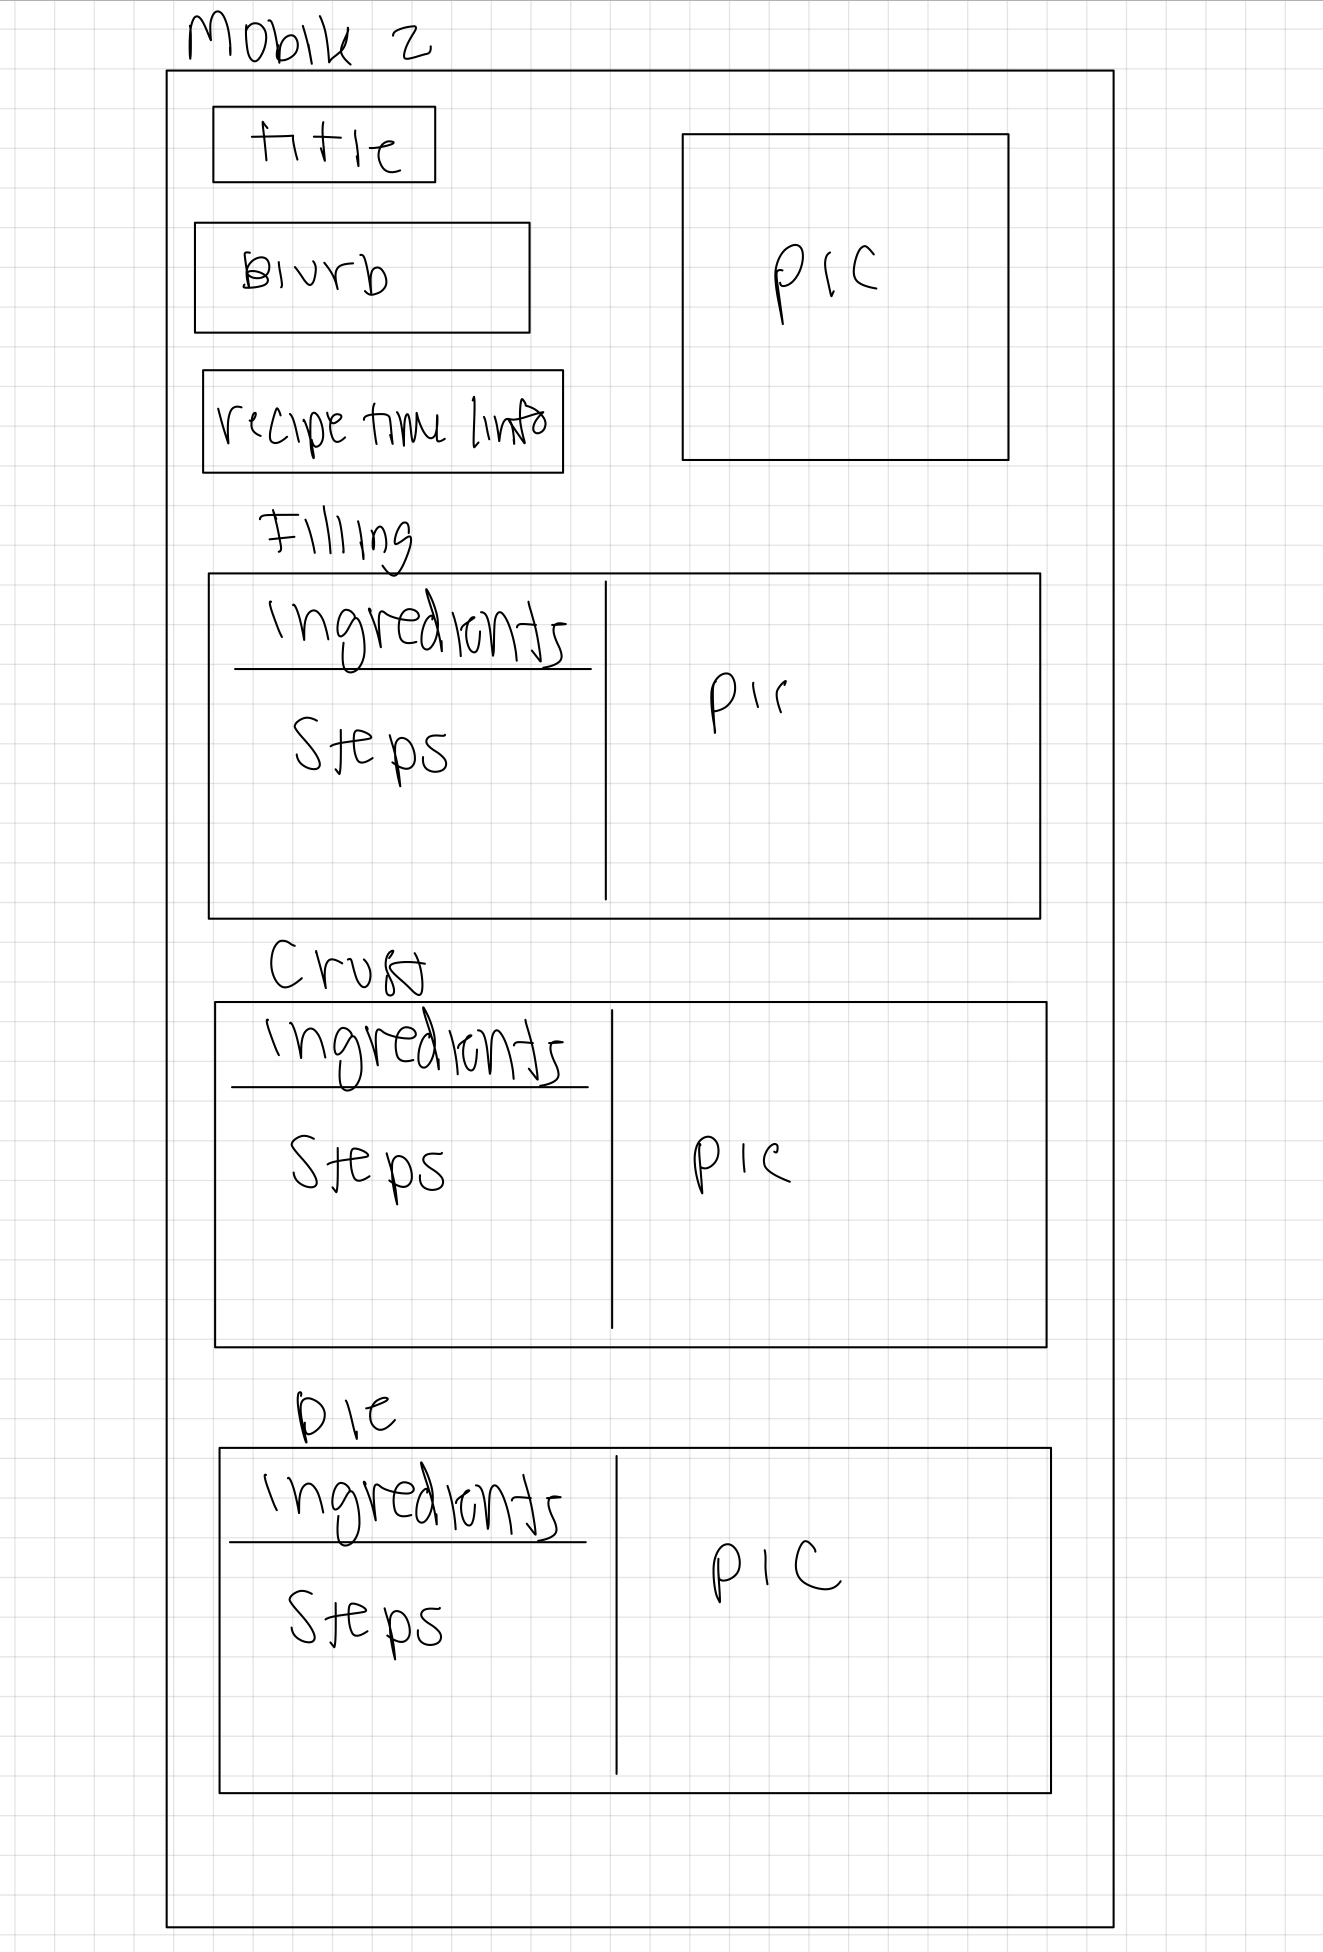 Mobile 2
title
Blurb
pic
recipe time / info
Filling
Ingredients
Steps
pic
Crust
Ingredients
Steps
pic
pie
Ingredients
Steps
pic